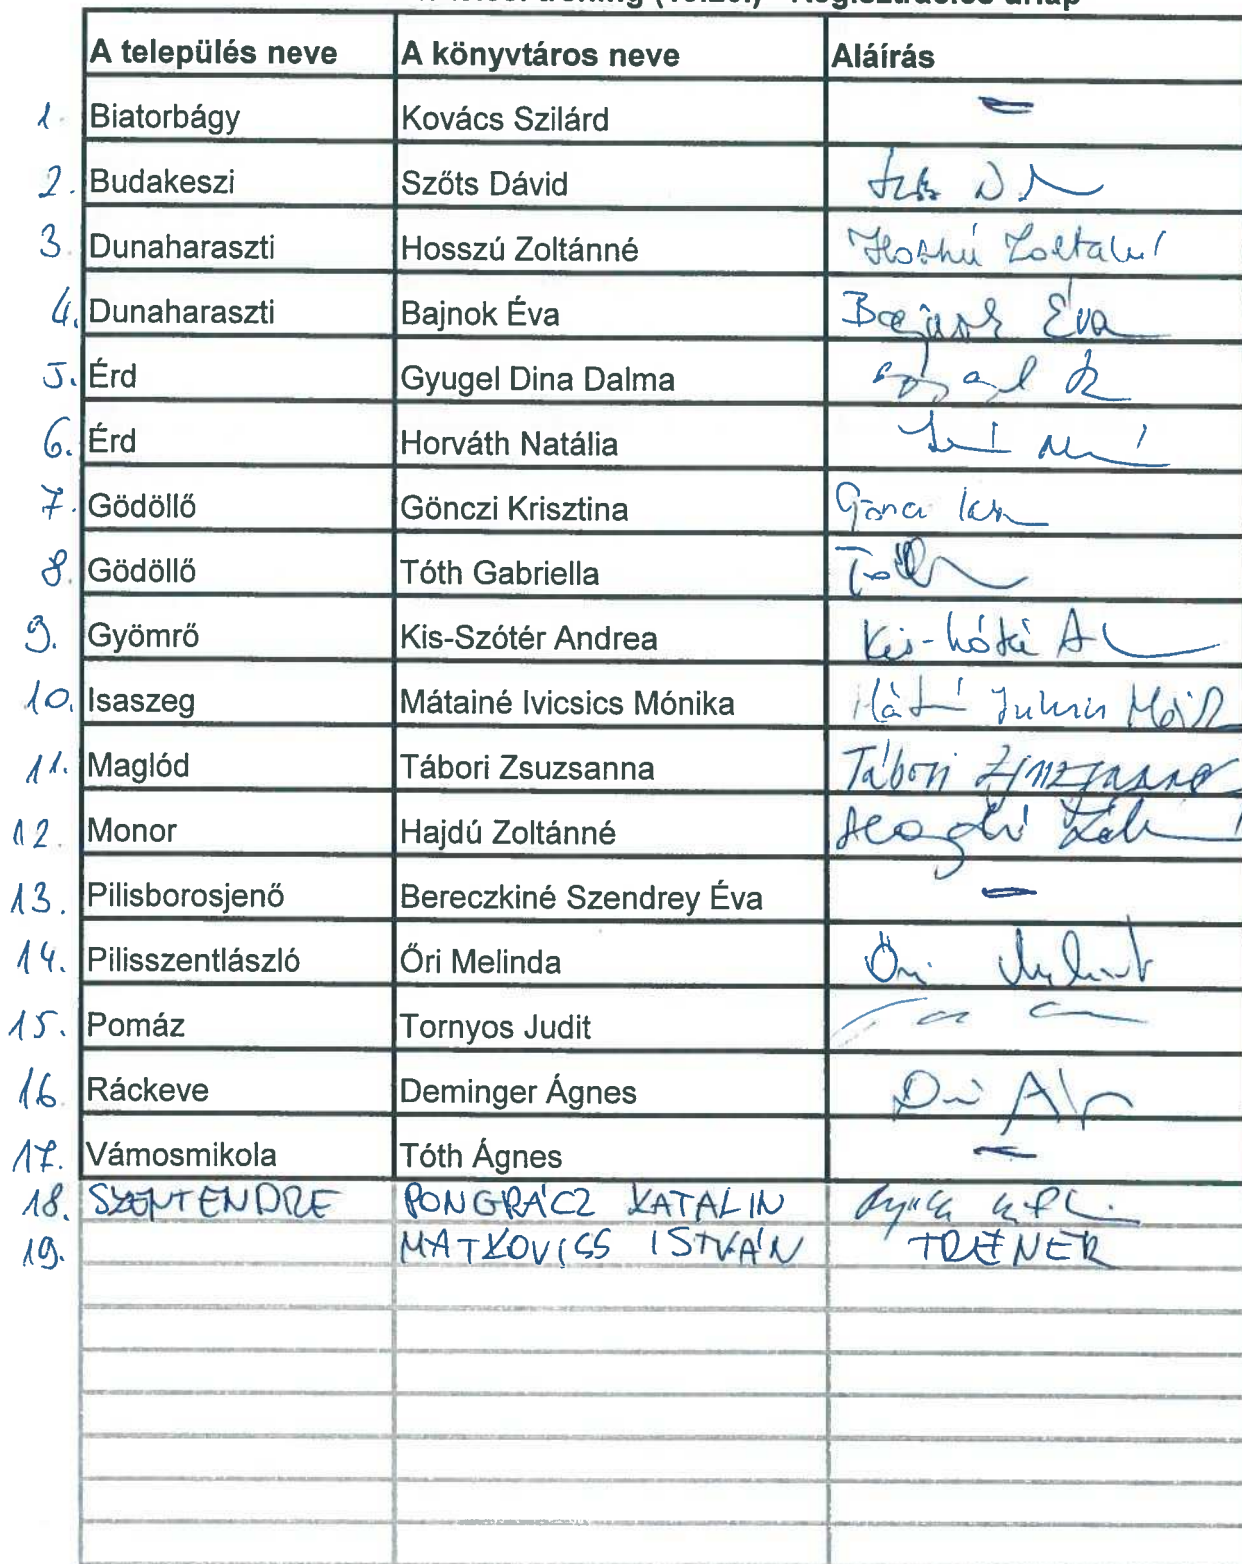 tréning (10.26.) - Regisztrációs űrlap
A település neve A könyvtáros neve Aláírás
1. Biatorbágy Kovács Szilárd –
2. Budakeszi Szőts Dávid
3. Dunaharaszti Hosszú Zoltánné
4. Dunaharaszti Bajnok Éva Bajnok Éva
5. Érd Gyugel Dina Dalma
6. Érd Horváth Natália
7. Gödöllő Gönczi Krisztina
8. Gödöllő Tóth Gabriella Tóth
9. Gyömrő Kis-Szótér Andrea
10. Isaszeg Mátainé Ivicsics Mónika
11. Maglód Tábori Zsuzsanna Tábori Zsuzsanna
12. Monor Hajdú Zoltánné
13. Pilisborosjenő Bereczkiné Szendrey Éva –
14. Pilisszentlászló Őri Melinda Őri Melinda
15. Pomáz Tornyos Judit
16. Ráckeve Deminger Ágnes
17. Vámosmikola Tóth Ágnes –
18. SZENTENDRE PONGRÁCZ KATALIN
19. MATKOVICS ISTVÁN TRÉNER